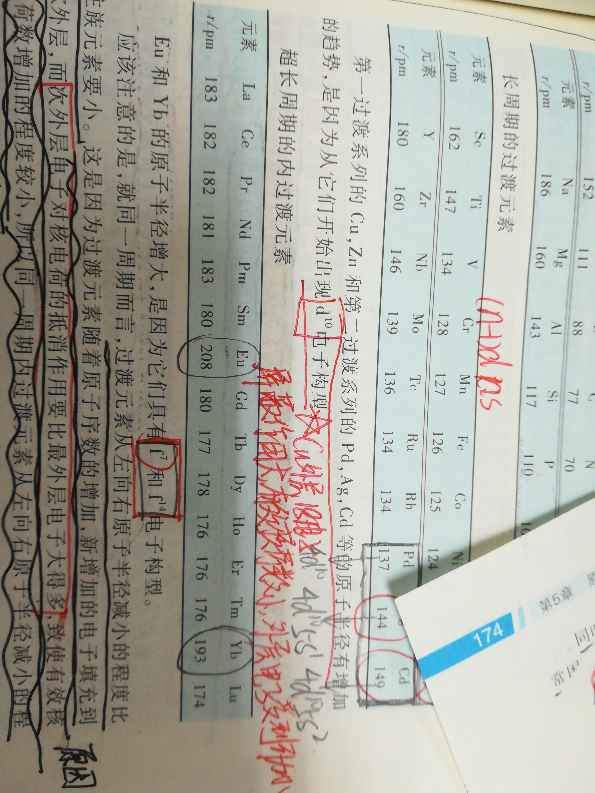 r/pm 152 111 88 77 70
元素 Na Mg Al Si P
r/pm 186 160 143 117 110
长周期的过渡元素
元素 Sc Ti V Cr Mn Fe Co Ni
r/pm 162 147 134 128 127 126 125 124
元素 Y Zr Nb Mo Tc Ru Rh Pd Cd
r/pm 180 160 146 139 136 134 134 137 144 149
第一过渡系列的 Cu, Zn 和第二过渡系列的 Pd, Ag, Cd 等的原子半径有增加
的趋势,是因为从它们开始出现 d¹⁰ 电子构型。
4d¹⁰ 4d¹⁰5s¹ 4d¹⁰5s²
超长周期的内过渡元素
元素 La Ce Pr Nd Pm Sm Eu Gd Tb Dy Ho Er Tm Yb Lu
r/pm 183 182 182 181 183 180 208 180 177 178 176 176 176 193 174
Eu 和 Yb 的原子半径增大,是因为它们具有 f⁷ 和 f¹⁴ 电子构型。
应该注意的是,就同一周期而言,过渡元素从左向右原子半径减小的程度比
主族元素要小。这是因为过渡元素随着原子序数的增加,新增加的电子填充到
次外层,而次外层电子对核电荷的抵消作用要比最外层电子大得多,致使有效核
荷数增加的程度较小,所以同一周期内过渡元素从左向右原子半径减小的程
原因
174
第5章